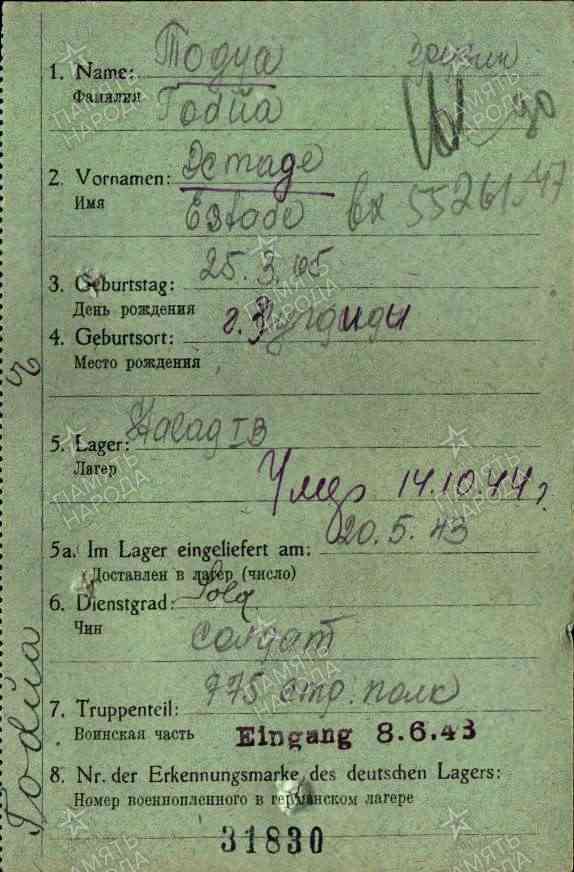 Тодуа грузин
1. Name:
Фамилия
Годйа
Эстаде
2. Vornamen:
Имя
Estade вх 55261.47
25.3.05
3. Geburtstag:
День рождения
г. Зугдиди
4. Geburtsort:
Место рождения
Stalag IB
5. Lager:
Лагер
Умер 14.10.44 г.
20.5.43
5a. Im Lager eingeliefert am:
Доставлен в лагер (число)
6. Dienstgrad: Sold.
Чин
солдат
775 стр. полк
7. Truppenteil:
Воинская часть
Eingang 8.6.43
8. Nr. der Erkennungsmarke des deutschen Lagers:
Номер военнопленного в германском лагере
31830
Годйа
ПАМЯТЬ НАРОДА